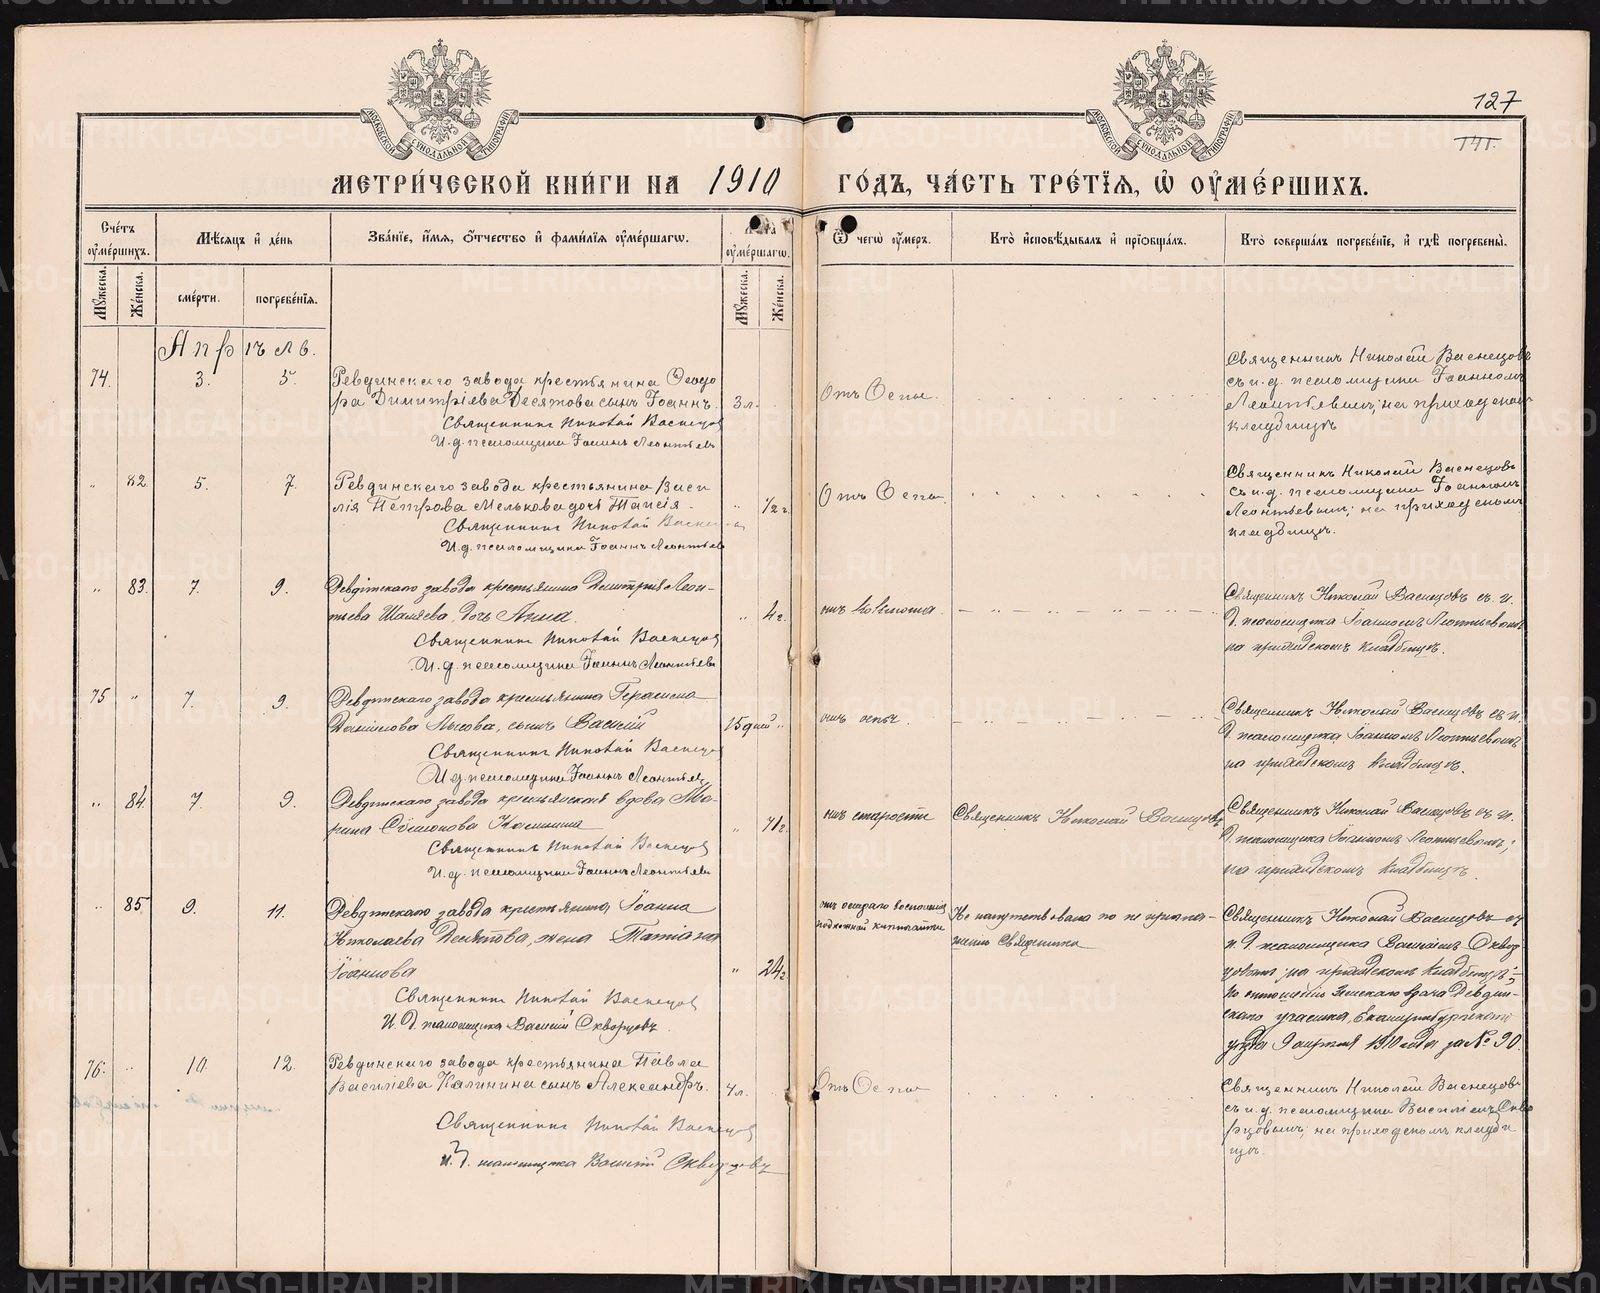 127
141.
МОСКОВСКОЙ СѴНОДАЛЬНОЙ ТИПОГРАФІИ
МОСКОВСКОЙ СѴНОДАЛЬНОЙ ТИПОГРАФІИ
МЕТРИ́ЧЕСКОЙ КНИ́ГИ НА 1910 ГО́ДЪ, ЧА́СТЬ ТРЕ́ТІѦ, Ѡ҆ ОУ҆МЕ́РШИХЪ.
Сче́тъ оу҆ме́ршихъ.
Мѣ́сяцъ и҆ де́нь
Зва́ніе, и҆́мя, ѻ҆́тчество и҆ фами́лія оу҆ме́ршагѡ.
Лѣта оу҆ме́ршагѡ.
Ѿ чегѡ̀ оу҆́меръ.
Кто̀ и҆сповѣ́дывалъ и҆ прїѡбща́лъ.
Кто̀ соверша́лъ погребе́ніе, и҆ гдѣ̀ погребены̀.
Мꙋ́жеска.
Же́нска.
сме́рти.
погребе́нія.
Мꙋ́жеска.
Же́нска.
Апрѣль.
74. 3. 5.
Ревдинскаго завода крестьянина Ѳеодо
ра Димитріева Десятова сынъ Іоаннъ. 3 л.
Священникъ Николай Васнецов
И. д. псаломщика Іоаннъ Леонтьев
Отъ Оспы.
Священникъ Николай Васнецовъ
съ и. д. псаломщика Іоанномъ
Леонтьевымъ; на приходском
кладбищѣ
" 82. 5. 7.
Ревдинскаго завода крестьянина Васи
лія Петрова Мелькова дочь Таисія. " 1/2 г.
Священникъ Николай Васнецов
И. д. псаломщика Іоаннъ Леонтьев
Отъ Оспы.
Священникъ Николай Васнецовъ
съ и. д. псаломщика Іоанномъ
Леонтьевымъ; на приходскомъ
кладбищѣ.
" 83. 7. 9.
Ревдинскаго завода крестьянина Димитрія Леон-
тьева дочь Анна. " 4 г.
Священникъ Николай Васнецов
И. д. псаломщика Іоаннъ Леонтьев
отъ
Священникъ Николай Васнецовъ съ и.
д. псаломщика Іоанномъ Леонтьевымъ
на приходскомъ кладбищѣ.
75 " 7. 9.
Ревдинскаго завода крестьянина Герасима
Данилова сынъ Василій 15 дней "
Священникъ Николай Васнецов
И. д. псаломщика Іоаннъ Леонтьев
отъ оспы.
Священникъ Николай Васнецовъ съ и.
д. псаломщика Іоанномъ Леонтьевымъ
на приходскомъ кладбищѣ.
" 84. 7. 9.
Ревдинскаго завода крестьянская вдова Ма-
рина " 71 г.
Священникъ Николай Васнецов
И. д. псаломщика Іоаннъ Леонтьев
отъ старости
Священникъ Николай Васнецовъ
Священникъ Николай Васнецовъ съ и.
д. псаломщика Іоанномъ Леонтьевымъ;
на приходскомъ кладбищѣ.
" 85. 9. 11.
Ревдинскаго завода крестьянина Іоанна
Николаева Десятова, жена Татіана
Іоаннова " 24 г.
Священникъ Николай Васнецов
И. д. псаломщика Василій Скворцовъ.
отъ остраго воспаленія
подкожной клетчатки
Не напутствована по не пригла-
шенію Священника
Священникъ Николай Васнецовъ съ
и д. псаломщика Василіемъ Сквор-
цовымъ; на приходскомъ кладбищѣ
по отношенію Земскаго врача Ревдин-
скаго участка, Екатеринбургскаго
уѣзда 9 апрѣля 1910 года за № 90.
76. " 10. 12.
Ревдинскаго завода крестьянина Павла
Василіева Калинина сынъ Александръ. 4 л.
Священникъ Николай Васнецов
И. д. псаломщика Василій Скворцовъ
Отъ Оспы
Священникъ Николай Васнецовъ
съ и. д. псаломщика Василіемъ Скво
рцовымъ; на приходскомъ кладби
щѣ.
METRIKI.GASO-URAL.RU